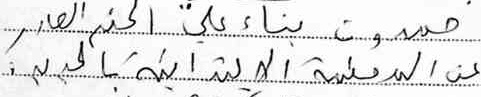 صدوت بناء على الحكم الصادر
عن المحكمة الابتدائية بالجديدة